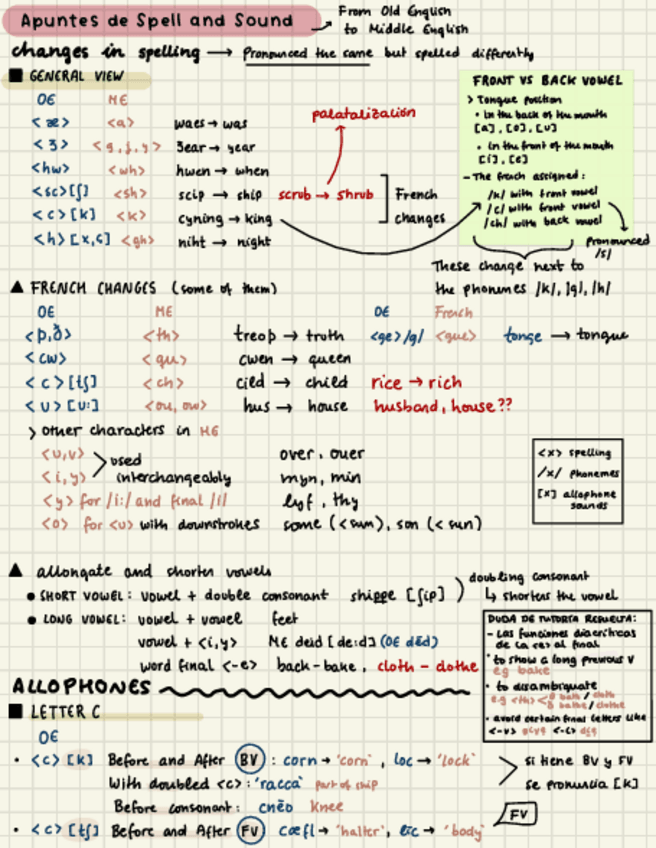 Apuntes de Spell and Sound → From Old English
to Middle English
changes in spelling → Pronounced the same but spelled differently
■ GENERAL VIEW
OE ME
<æ> <a> waes → was
<ʒ> <g, j, y> ʒear → year
<hw> <wh> hwen → when
<sc>[ʃ] <sh> scip → ship scrub → shrub
<c>[k] <k> cyning → king
<h>[x,ç] <gh> niht → night
palatalización
French
changes
FRONT VS BACK VOWEL
> Tongue position
• In the back of the mouth
[a], [o], [u]
• In the front of the mouth
[i], [e]
- The french assigned:
/k/ with front vowel
/c/ with front vowel
/ch/ with back vowel
Pronounced
/s/
These change next to
the phonemes /k/, /g/, /h/
▲ FRENCH CHANGES (some of them)
OE ME OE French
<þ,ð> <th> treoþ → truth <ge>/g/ <gue> tonge → tongue
<cw> <qu> cwen → queen
<c>[tʃ] <ch> cild → child rice → rich
<u>[u:] <ou, ow> hus → house husband, house??
> other characters in ME
<u,v> over, ouer
<i,y> myn, min
used
interchangeably
<y> for /i:/ and final /i/ lyf, thy
<o> for <u> with downstrokes some (<sum), son (<sun)
<x> spelling
/x/ phonemes
[x] allophone
sounds
▲ allongate and shorten vowels
• SHORT VOWEL: vowel + double consonant shippe [ʃip]
doubling consonant
↳ shortens the vowel
• LONG VOWEL: vowel + vowel feet
vowel + <i,y> ME deid [de:d] (OE dēd)
word final <-e> back-bake, cloth - clothe
DUDA DE TUTORÍA RESUELTA:
- Las funciones diacríticas
de la <e> al final
• to show a long previous V
eg bake
• to disambiguate
e.g <th> < θ bath / cloth
ð bathe / clothe
• avoid certain final letters like
ALLOPHONES
■ LETTER C
OE
• <c> [k] Before and After BV : corn → 'corn', loc → 'lock'
With doubled <c>: 'racca' part of ship
Before consonant: cnēo Knee
si tiene BV y FV
se pronuncia [k]
• <c> [tʃ] Before and After FV cæfl → 'halter', līc → 'body'
FV